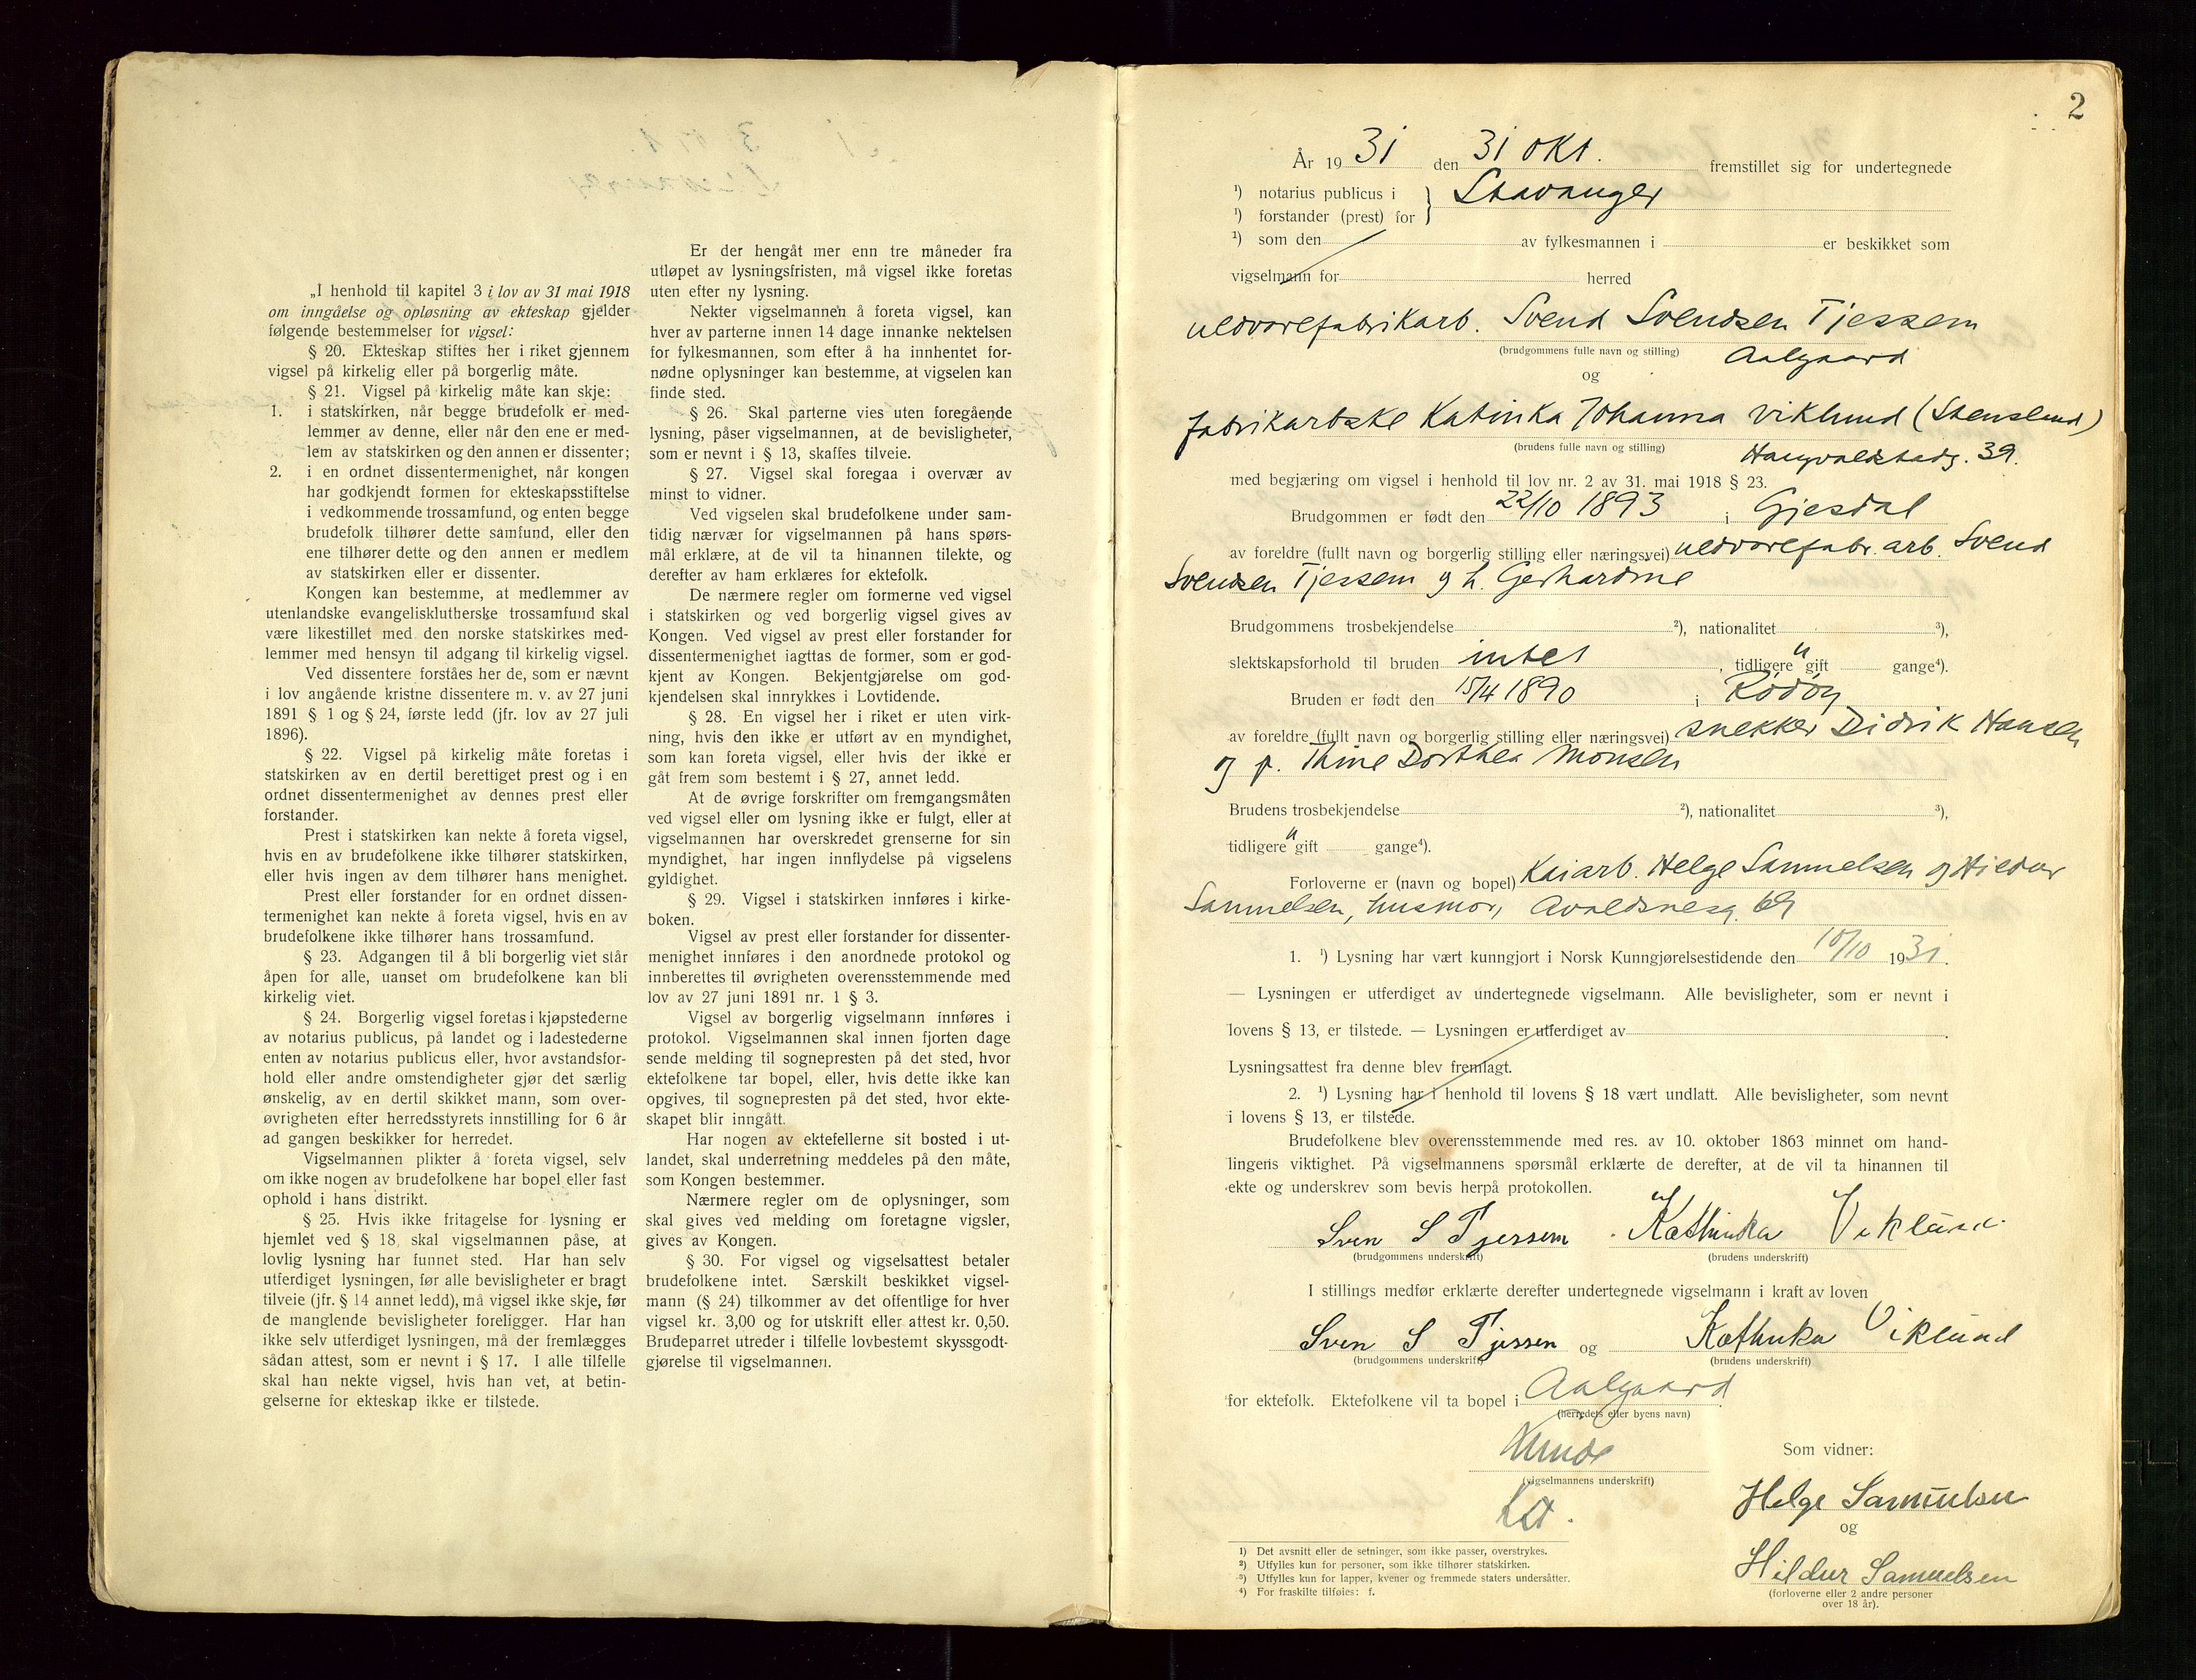 „I henhold til kapitel 3 i lov av 31 mai 1918
om inngåelse og opløsning av ekteskap gjelder
følgende bestemmelser for vigsel:
§ 20. Ekteskap stiftes her i riket gjennem
vigsel på kirkelig eller på borgerlig måte.
§ 21. Vigsel på kirkelig måte kan skje:
1. i statskirken, når begge brudefolk er med-
lemmer av denne, eller når den ene er med-
lem av statskirken og den annen er dissenter;
2. i en ordnet dissentermenighet, når kongen
har godkjendt formen for ekteskapsstiftelse
i vedkommende trossamfund, og enten begge
brudefolk tilhører dette samfund, eller den
ene tilhører dette og den annen er medlem
av statskirken eller er dissenter.
Kongen kan bestemme, at medlemmer av
utenlandske evangelisklutherske trossamfund skal
være likestillet med den norske statskirkes med-
lemmer med hensyn til adgang til kirkelig vigsel.
Ved dissentere forståes her de, som er nævnt
i lov angående kristne dissentere m. v. av 27 juni
1891 § 1 og § 24, første ledd (jfr. lov av 27 juli
1896).
§ 22. Vigsel på kirkelig måte foretas i
statskirken av en dertil berettiget prest og i en
ordnet dissentermenighet av dennes prest eller
forstander.
Prest i statskirken kan nekte å foreta vigsel,
hvis en av brudefolkene ikke tilhører statskirken,
eller hvis ingen av dem tilhører hans menighet.
Prest eller forstander for en ordnet dissen-
termenighet kan nekte å foreta vigsel, hvis en av
brudefolkene ikke tilhører hans trossamfund.
§ 23. Adgangen til å bli borgerlig viet står
åpen for alle, uanset om brudefolkene kan bli
kirkelig viet.
§ 24. Borgerlig vigsel foretas i kjøpstederne
av notarius publicus, på landet og i ladestederne
enten av notarius publicus eller, hvor avstandsfor-
hold eller andre omstendigheter gjør det særlig
ønskelig, av en dertil skikket mann, som over-
øvrigheten efter herredsstyrets innstilling for 6 år
ad gangen beskikker for herredet.
Vigselmannen plikter å foreta vigsel, selv
om ikke nogen av brudefolkene har bopel eller fast
ophold i hans distrikt.
§ 25. Hvis ikke fritagelse for lysning er
hjemlet ved § 18, skal vigselmannen påse, at
lovlig lysning har funnet sted. Har han selv
utferdiget lysningen, før alle bevisligheter er bragt
tilveie (jfr. § 14 annet ledd), må vigsel ikke skje, før
de manglende bevisligheter foreligger. Har han
ikke selv utferdiget lysningen, må der fremlægges
sådan attest, som er nevnt i § 17. I alle tilfelle
skal han nekte vigsel, hvis han vet, at betin-
gelserne for ekteskap ikke er tilstede.
Er der hengåt mer enn tre måneder fra
utløpet av lysningsfristen, må vigsel ikke foretas
uten efter ny lysning.
Nekter vigselmannen å foreta vigsel, kan
hver av parterne innen 14 dage innanke nektelsen
for fylkesmannen, som efter å ha innhentet for-
nødne oplysninger kan bestemme, at vigselen kan
finde sted.
§ 26. Skal parterne vies uten foregående
lysning, påser vigselmannen, at de bevisligheter,
som er nevnt i § 13, skaffes tilveie.
§ 27. Vigsel skal foregaa i overvær av
minst to vidner.
Ved vigselen skal brudefolkene under sam-
tidig nærvær for vigselmannen på hans spørs-
mål erklære, at de vil ta hinannen tilekte, og
derefter av ham erklæres for ektefolk.
De nærmere regler om formerne ved vigsel
i statskirken og ved borgerlig vigsel gives av
Kongen. Ved vigsel av prest eller forstander for
dissentermenighet iagttas de former, som er god-
kjent av Kongen. Bekjentgjørelse om god-
kjendelsen skal innrykkes i Lovtidende.
§ 28. En vigsel her i riket er uten virk-
ning, hvis den ikke er utført av en myndighet,
som kan foreta vigsel, eller hvis der ikke er
gåt frem som bestemt i § 27, annet ledd.
At de øvrige forskrifter om fremgangsmåten
ved vigsel eller om lysning ikke er fulgt, eller at
vigselmannen har overskredet grenserne for sin
myndighet, har ingen innflydelse på vigselens
gyldighet.
§ 29. Vigsel i statskirken innføres i kirke-
boken.
Vigsel av prest eller forstander for dissenter-
menighet innføres i den anordnede protokol og
innberettes til øvrigheten overensstemmende med
lov av 27 juni 1891 nr. 1 § 3.
Vigsel av borgerlig vigselmann innføres i
protokol. Vigselmannen skal innen fjorten dage
sende melding til sognepresten på det sted, hvor
ektefolkene tar bopel, eller, hvis dette ikke kan
opgives, til sognepresten på det sted, hvor ekte-
skapet blir inngått.
Har nogen av ektefellerne sit bosted i ut-
landet, skal underretning meddeles på den måte,
som Kongen bestemmer.
Nærmere regler om de oplysninger, som
skal gives ved melding om foretagne vigsler,
gives av Kongen.
§ 30. For vigsel og vigselsattest betaler
brudefolkene intet. Særskilt beskikket vigsel-
mann (§ 24) tilkommer av det offentlige for hver
vigsel kr. 3,00 og for utskrift eller attest kr. 0,50.
Brudeparret utreder i tilfelle lovbestemt skyssgodt-
gjørelse til vigselmannen.
2
År 1931 den 31 okt. fremstillet sig for undertegnede
¹) notarius publicus i
¹) forstander (prest) for } Stavanger
¹) som den av fylkesmannen i er beskikket som
vigselmann for herred
uldvarefabrikarb. Svend Svendsen Tjessem
(brudgommens fulle navn og stilling) Aalgaard
og
fabrikarbske Katinka Johanna Viklund (Stensland)
(brudens fulle navn og stilling) Haugvaldstadg. 39.
med begjæring om vigsel i henhold til lov nr. 2 av 31. mai 1918 § 23.
Brudgommen er født den 22/10 1893 i Gjesdal
av foreldre (fullt navn og borgerlig stilling eller næringsvei) uldvarefabr. arb. Svend
Svendsen Tjessem og h. Gerhardine
Brudgommens trosbekjendelse ²), nationalitet ³),
slektskapsforhold til bruden intet, tidligere u gift gange⁴).
Bruden er født den 15/4 1890 i Rödöy
av foreldre (fullt navn og borgerlig stilling eller næringsvei) snekker Didrik Hansen
og p. Thine Dorthea Monsen
Brudens trosbekjendelse ²), nationalitet ³),
tidligere u gift gange⁴).
Forloverne er (navn og bopel) Kaiarb. Helge Samuelsen og Hildur
Samuelsen, husmor, Avaldsnesg. 69
1. ¹) Lysning har vært kunngjort i Norsk Kunngjørelsestidende den 10/10 1931.
— Lysningen er utferdiget av undertegnede vigselmann. Alle bevisligheter, som er nevnt i
lovens § 13, er tilstede. — Lysningen er utferdiget av .
Lysningsattest fra denne blev fremlagt.
2. ¹) Lysning har i henhold til lovens § 18 vært undlatt. Alle bevisligheter, som nevnt
i lovens § 13, er tilstede.
Brudefolkene blev overensstemmende med res. av 10. oktober 1863 minnet om hand-
lingens viktighet. På vigselmannens spørsmål erklærte de derefter, at de vil ta hinannen til
ekte og underskrev som bevis herpå protokollen.
Sven S Tjessem Kathinka Viklund
(brudgommens underskrift) (brudens underskrift)
I stillings medfør erklærte derefter undertegnede vigselmann i kraft av loven
Sven S Tjessen og Kathinka Viklund
(brudgommens underskrift) (brudens underskrift)
for ektefolk. Ektefolkene vil ta bopel i Aalgaard
(herredets eller byens navn)
Som vidner:
(vigselmannens underskrift)
Helge Samuelsen
og
Hildur Samuelsen
(forloverne eller 2 andre personer
over 18 år).
¹) Det avsnitt eller de setninger, som ikke passer, overstrykes.
²) Utfylles kun for personer, som ikke tilhører statskirken.
³) Utfylles kun for lapper, kvener og fremmede staters undersåtter.
⁴) For fraskilte tilføies: f.